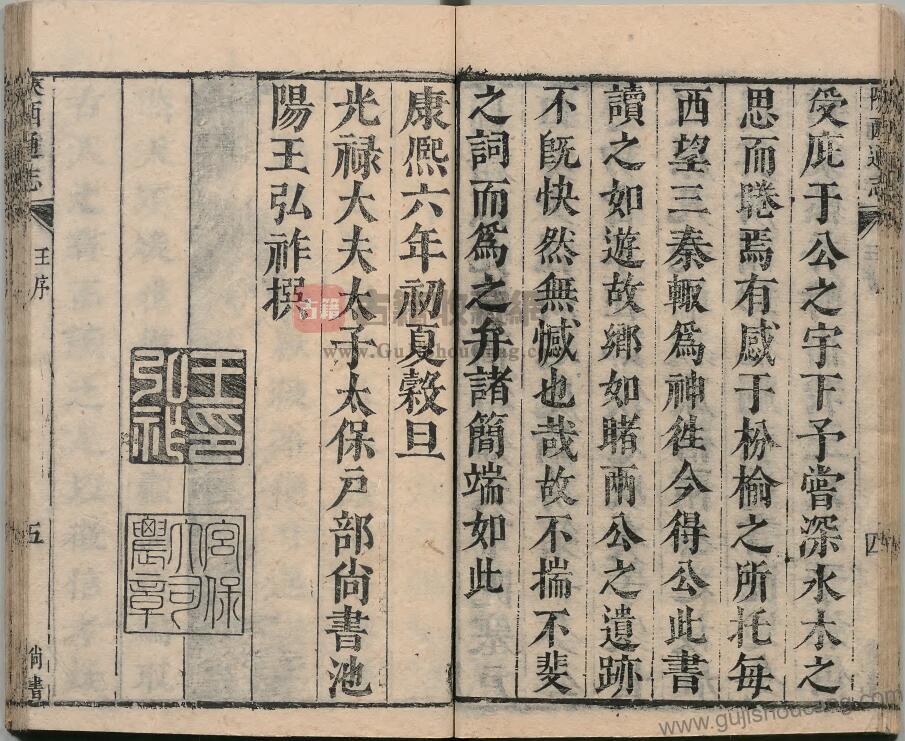 受庇于公之宇下予嘗深水木之
思而睠焉有感于枌榆之所托每
西望三秦輙爲神徃今得公此書
讀之如遊故鄉如睹兩公之遺跡
不旣快然無憾也哉故不揣不斐
之詞而爲之弁諸簡端如此
康熙六年初夏穀旦
光祿大夫太子太保戶部尙書池
陽王弘祚撰
王弘祚印
宮保大司農章
陝西通志
王序
五
尙書
陝西通志
四
古籍
www.gujishoucang.com